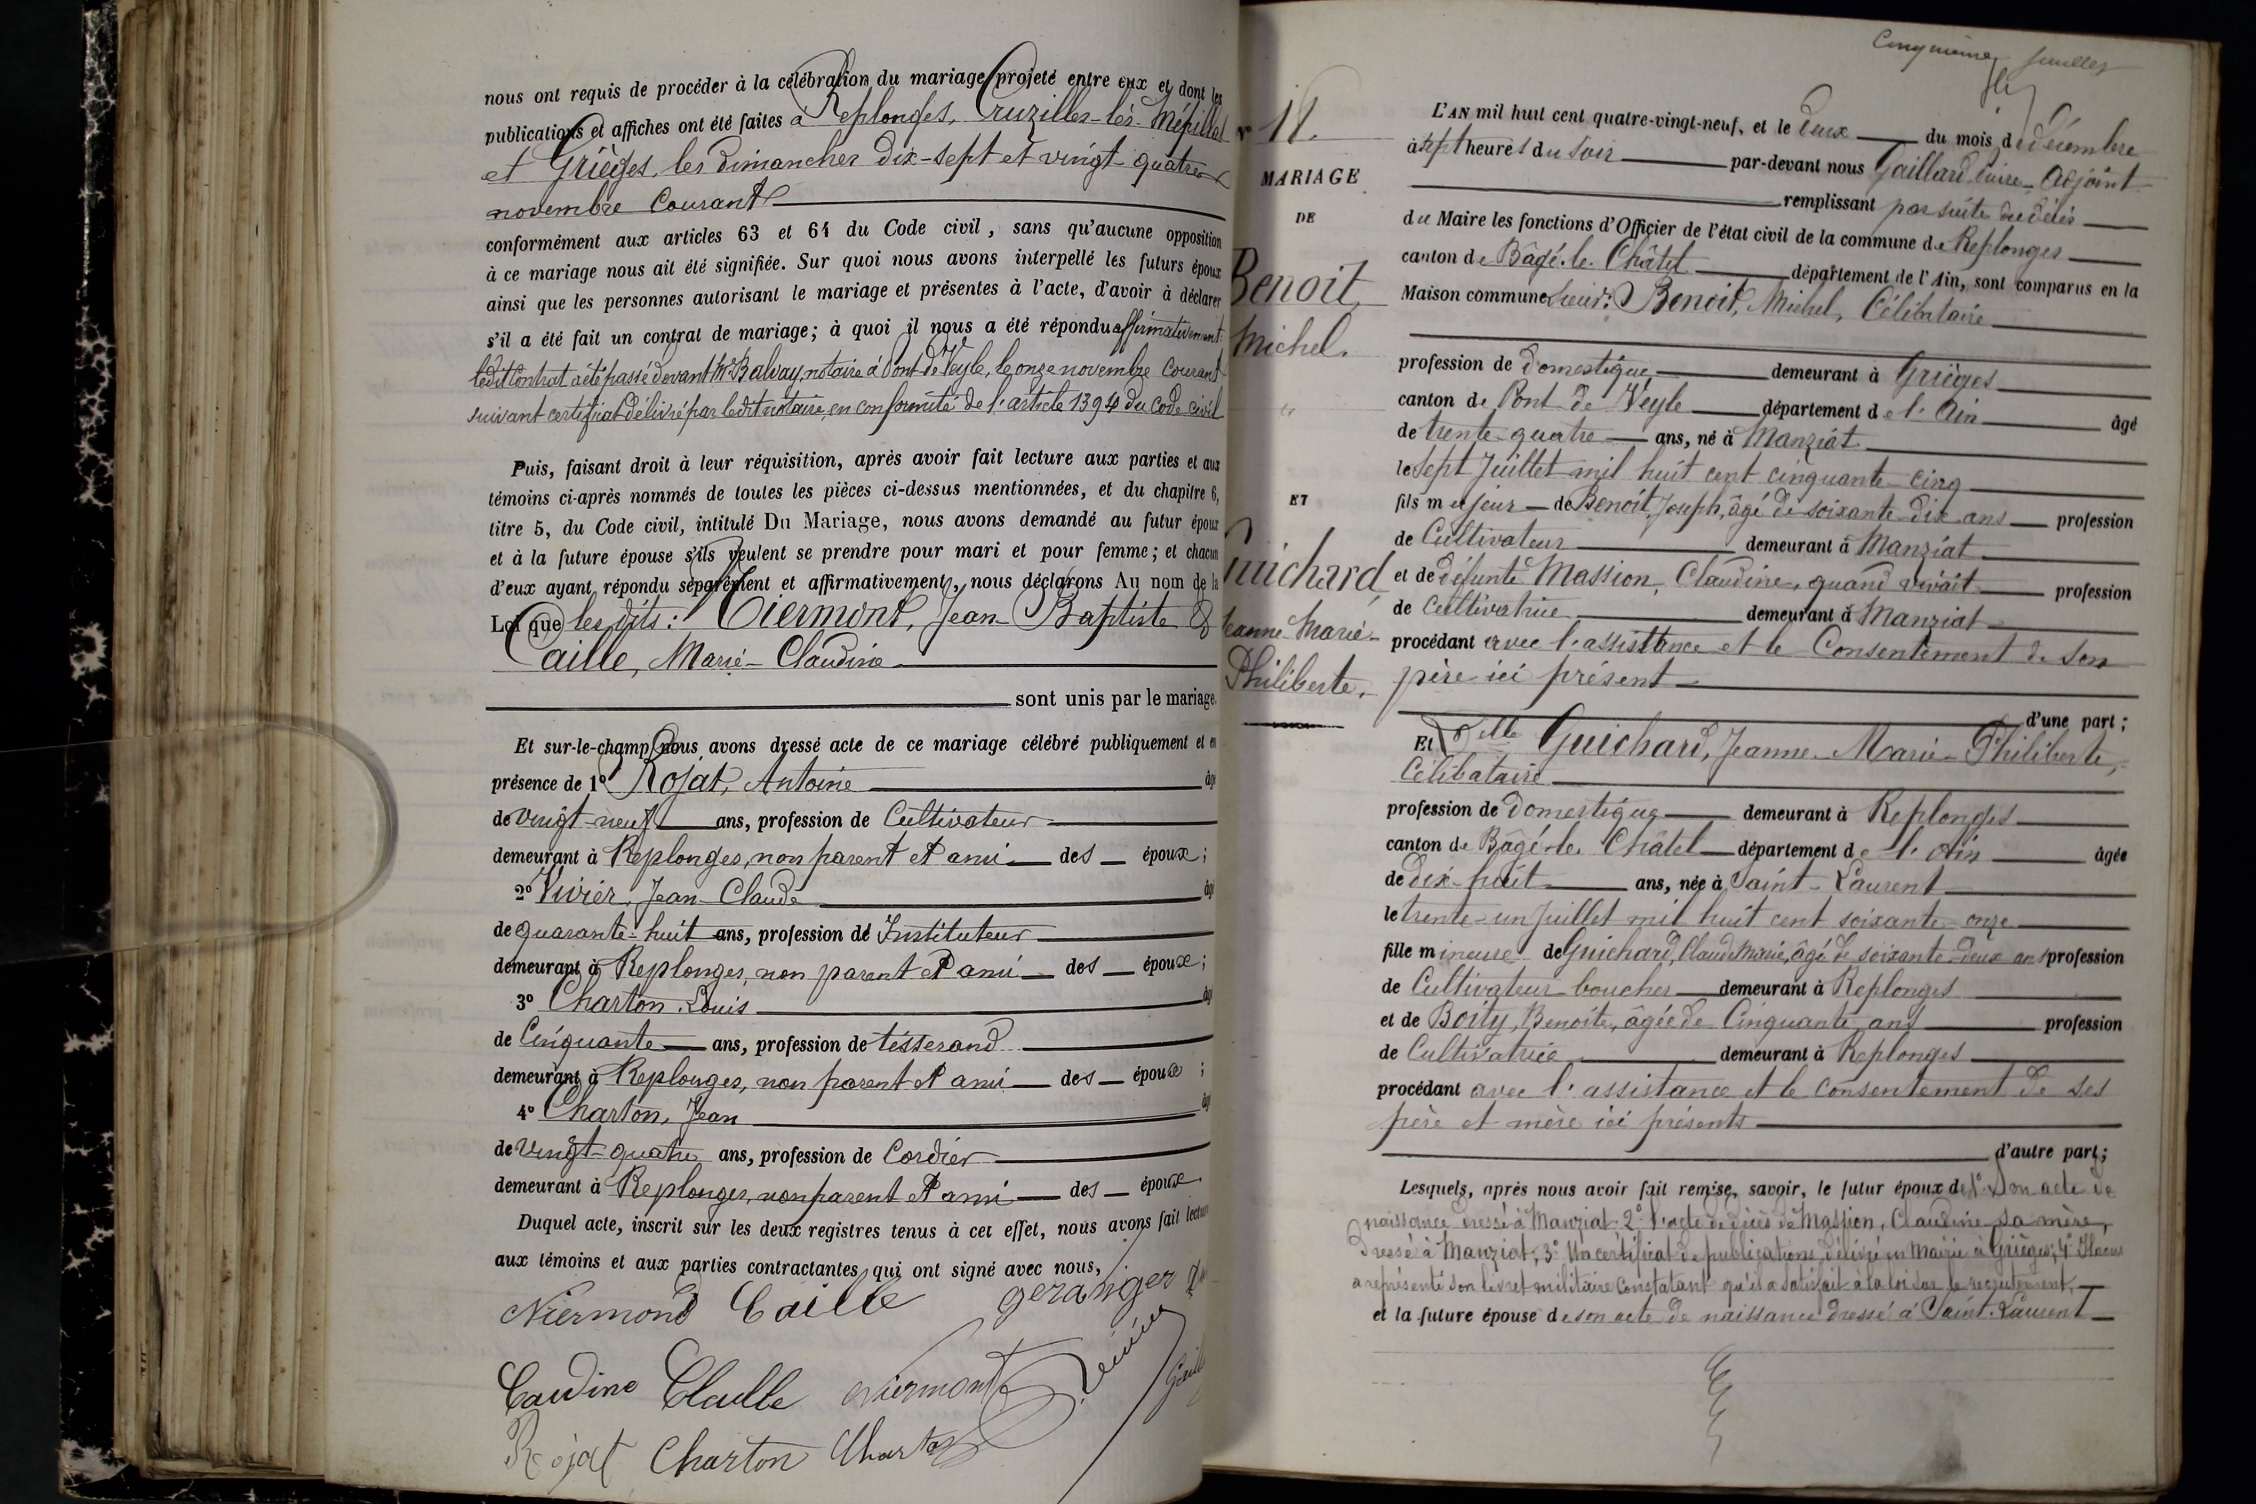 nous ont requis de procéder à la célébration du mariage projeté entre eux et dont les
publications et affiches ont été faites à Replonges, Cruzilles-lès-Mépillat
et Grièges, les dimanches dix-sept et vingt-quatre
novembre Courant
conformément aux articles 63 et 64 du Code civil, sans qu'aucune opposition
à ce mariage nous ait été signifiée. Sur quoi nous avons interpellé les futurs époux
ainsi que les personnes autorisant le mariage et présentes à l'acte, d'avoir à déclarer
s'il a été fait un contrat de mariage; à quoi il nous a été répondu affirmativement
ledit Contrat a été passé devant Mr Balvay, notaire à Pont de Veyle, le onze novembre Courant
suivant certificat délivré par ledit notaire en conformité de l'article 1394 du Code civil
Puis, faisant droit à leur réquisition, après avoir fait lecture aux parties et aux
témoins ci-après nommés de toutes les pièces ci-dessus mentionnées, et du chapitre 6,
titre 5, du Code civil, intitulé Du Mariage, nous avons demandé au futur époux
et à la future épouse s'ils veulent se prendre pour mari et pour femme; et chacun
d'eux ayant répondu séparément et affirmativement, nous déclarons Au nom de la
Loi que les dits: Niermont, Jean-Baptiste &
Caille, Marie-Claudine
sont unis par le mariage.
Et sur-le-champ nous avons dressé acte de ce mariage célébré publiquement et en
présence de 1º Rojat, Antoine âgé
de vingt-neuf ans, profession de Cultivateur
demeurant à Replonges, non parent et ami des époux;
2º Vivier, Jean-Claude âgé
de quarante-huit ans, profession de Instituteur
demeurant à Replonges, non parent et ami des époux;
3º Charton Louis âgé
de Cinquante ans, profession de tésserand
demeurant à Replonges, non parent et ami des époux;
4º Charton, Jean âgé
de vingt-quatre ans, profession de Cordier
demeurant à Replonges, non parent et ami des époux
Duquel acte, inscrit sur les deux registres tenus à cet effet, nous avons fait lecture
aux témoins et aux parties contractantes qui ont signé avec nous,
Niermond Caille geranger
Caudine Claulle Niermont Vivier
Rojat Charton Charton
Cinquième feuillet
Nº 18.
MARIAGE
DE
Benoit,
Michel.
ET
Guichard,
Jeanne-Marie-
Philiberte.
L'AN mil huit cent quatre-vingt-neuf, et le deux du mois de décembre
à sept heures du soir par-devant nous Gaillard Adjoint
remplissant par suite
du Maire les fonctions d'Officier de l'état civil de la commune de Replonges
canton de Bâgé-le-Châtel département de l'Ain, sont comparus en la
Maison commune Sieur: Benoit, Michel, Célibataire
profession de domestique demeurant à Grièges
canton de Pont de Veyle département de l'Ain âgé
de trente-quatre ans, né à Manziat
le sept Juillet mil huit cent cinquante-cinq
fils majeur de Benoit, Joseph, âgé de soixante-dix ans profession
de Cultivateur demeurant à Manziat
et de défunte Massion, Claudine, quand vivait profession
de Cultivatrice demeurant à Manziat
procédant avec l'assistance et le Consentement de son
père ici présent
d'une part;
Et Delle Guichard, Jeanne-Marie-Philiberte,
Célibataire
profession de domestique demeurant à Replonges
canton de Bâgé-le-Châtel département de l'Ain âgée
de dix-huit ans, née à Saint-Laurent
le trente-un Juillet mil huit cent soixante-onze
fille mineure de Guichard, Claude Marie, âgé de soixante-deux ans profession
de Cultivateur-boucher demeurant à Replonges
et de Boity, Benoite, âgée de Cinquante ans profession
de Cultivatrice demeurant à Replonges
procédant avec l'assistance et le consentement de ses
père et mère ici présents
d'autre part;
Lesquels, après nous avoir fait remise, savoir, le futur époux de 1º Son acte de
naissance dressé à Manziat 2º l'acte de décès de Massion, Claudine sa mère,
dressé à Manziat; 3º Un certificat de publications délivré en Mairie à Grièges; 4º Il nous
a représenté son livret militaire constatant qu'il a satisfait à la loi sur le recrutement.
et la future épouse de son acte de naissance dressé à Saint-Laurent